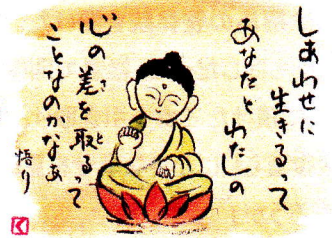 しあわせに
生きるって
あなたと わたしの
心の差を取るって
さ と
ことなのかなあ
悟り